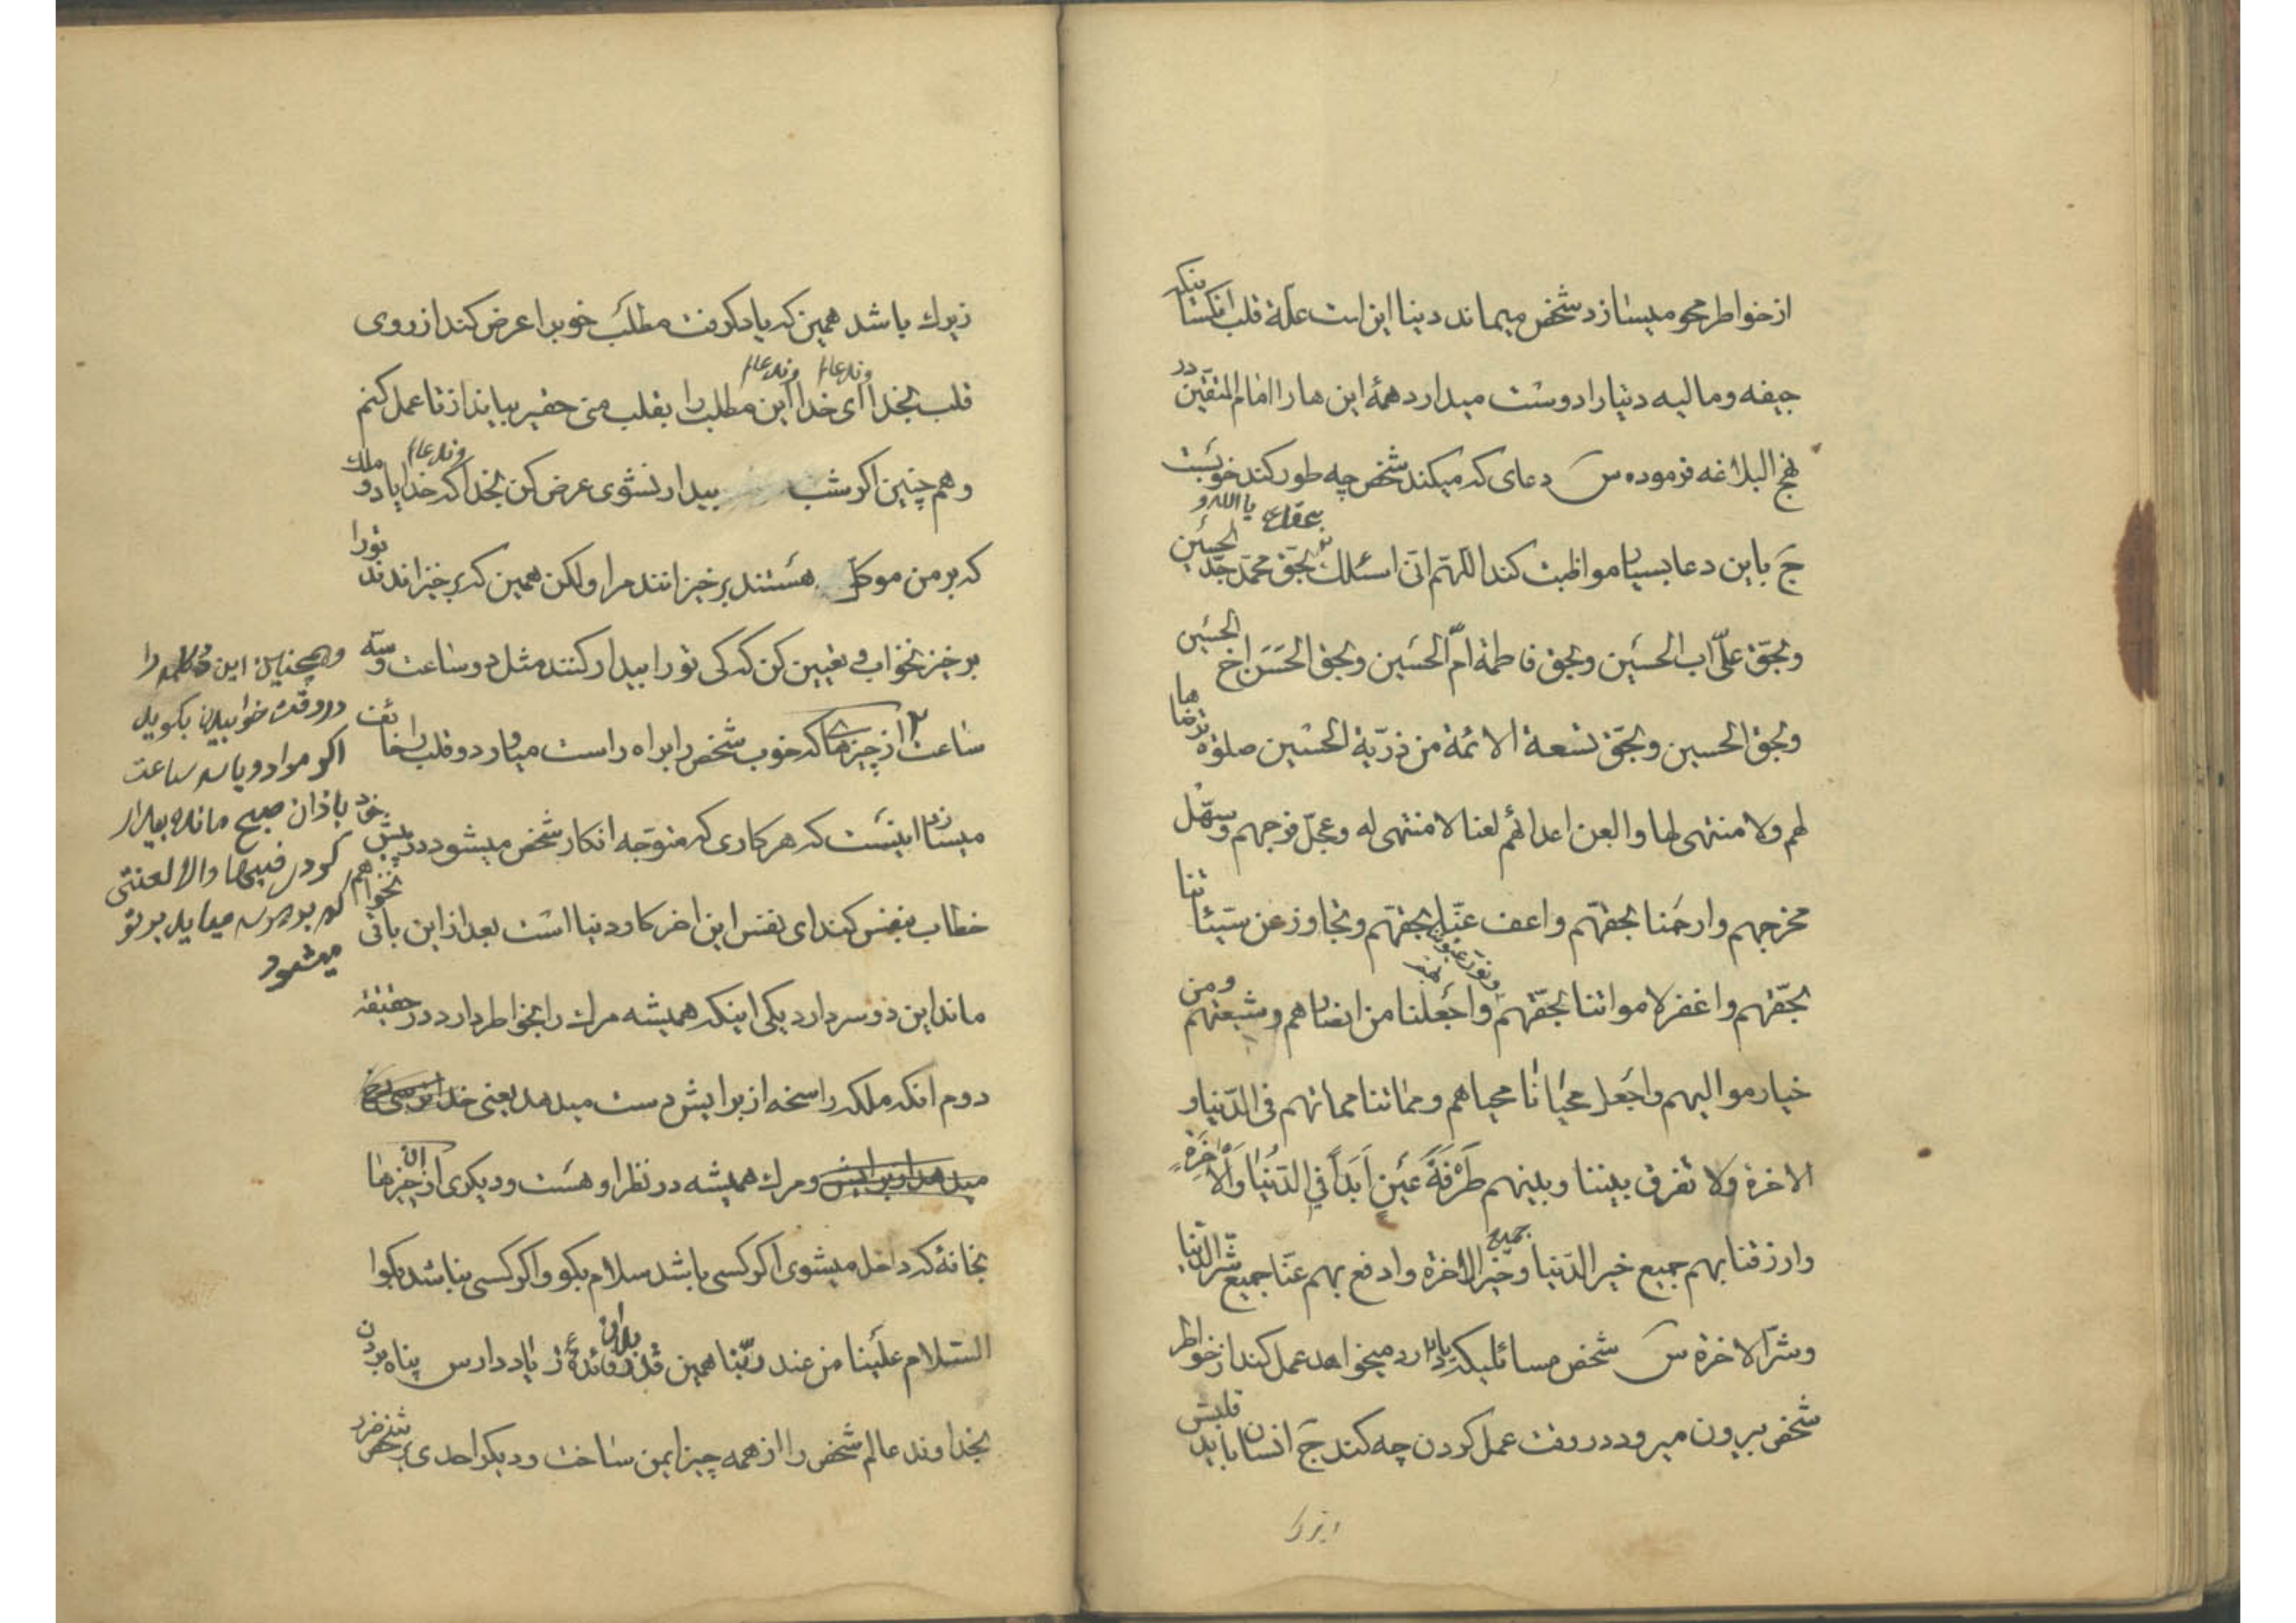 از خواطر محو میسازد شخص میماند دینا این است علة قلب انکسا
جیفه و مالیه دنیا را دوست میدارد همهٔ این ها را امام المتقین در
نهج البلاغه فرموده س دعای که میکند شخص چه طور کند خوبست
ج باین دعا بسیار مواظبت کند اللهم انی اسئلک بحق محمد جد الحسین
و بحق علی اب الحسین و بحق فاطمة ام الحسین و بحق الحسن اخ الحسین
و بحق الحسین و بحق تسعة الائمة من ذریة الحسین صلوة
لهم ولا منتهی لها والعن اعدائهم لعنا لا منتهی له وعجل فرجهم وسهل
مخرجهم وارحمنا بحقهم واعف عنا بحقهم وتجاوز عن سیئاتنا
بحقهم واغفر لامواتنا بحقهم واجعلنا من انصارهم وشیعتهم ومن
خیار موالیهم واجعل محیانا محیاهم ومماتنا مماتهم فی الدنیا و
الاخرة ولا تفرق بیننا وبینهم طَرْفَةَ عَیْنٍ اَبَداً فِي الدُنْیا وَالْاخَرَةِ
وارزقنا بهم جمیع خیر الدنیا و جمیع خیر الاخرة وادفع بهم عنا جمیع شر الدنیا
وشر الاخرة س شخص مسائلیکه یاد دارد میخواهد عمل کند از خواطر
شخص بیرون میرود در وقت عمل کردن چه کند ج انسان باید قلبش
زیرك باشد همین که یاد گرفت مطلب خوبرا عرض کند از روی
قلب بخدا ای خدا این مطلب را بقلب من حقیر بیانداز تا عمل کنم
وهم چنین اکر شب بیدار نشوی عرض کن بخدا که خدایا دو ملك
که بر من موکل هستند برخیزانند مرا ولکن همین که برخیزاندند تورا
برخیز نخوابی تعیین کن که کی تورا بیدار کنند مثل دو ساعت و سه
ساعت ۲ از چیزهاکه خوب شخص را براه راست میاورد و قلب را خائف
میسازد اینست که هر کاری که متوجه انکار شخص میشود در پیش خود
خطاب بنفس کند ای نفس این اخر کار دنیا است بعد از این باقی نخواهم
ماند این دو سر دارد یکی اینکه همیشه مرك را بخواطر دارد در حقیقة
دوم انکه ملکه راسخه از برایش دست میدهد یعنی خدا
میدهد از برایش ومرك همیشه در نظر او هست و دیکری از ان چیزها
بخانهٔ که داخل میشوی اکر کسی باشد سلام بکو و اکر کسی نباشد بکو
السلام علینا من عند ربنا همین قدر بدان فائدهٔ زیاد دارد س پناه بردن
بخداوند عالم شخص را از همه چیز ایمن ساخت و دیکر احدی بر شخص
وهمچنین این کلمه را
در وقت خوابیدن بکوید
اکر مرا دو یا سه ساعت
باذان صبح مانده بیدار
کردی فبها والا لعنتی
که بر میاید بر تو
میشود